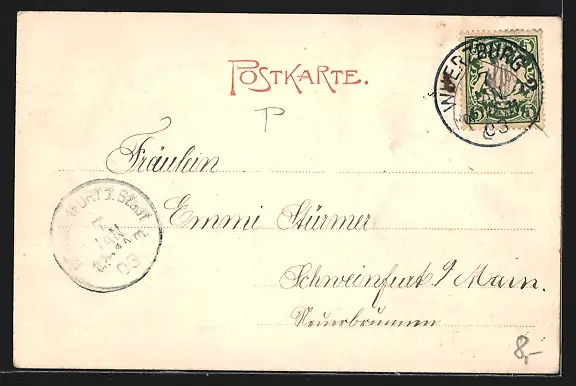 POSTKARTE.
WUERZBURG 2
03
5 5
P
Fräulein
Emmi Stürmer
Schweinfurt a/ Main.
Neuerbrunnen
Stadt
7
JAN
03
8,-